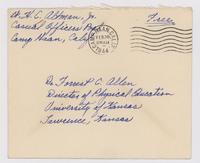 Lt. H. C. Altman, Jr.
Casual Officers Pool
Camp Haan, Calif.
Free
CAMP HAAN, CALIF.
FEB
1944
Dr. Forrest C. Allen
Director of Physical Education
University of Kansas
Lawrence, Kansas